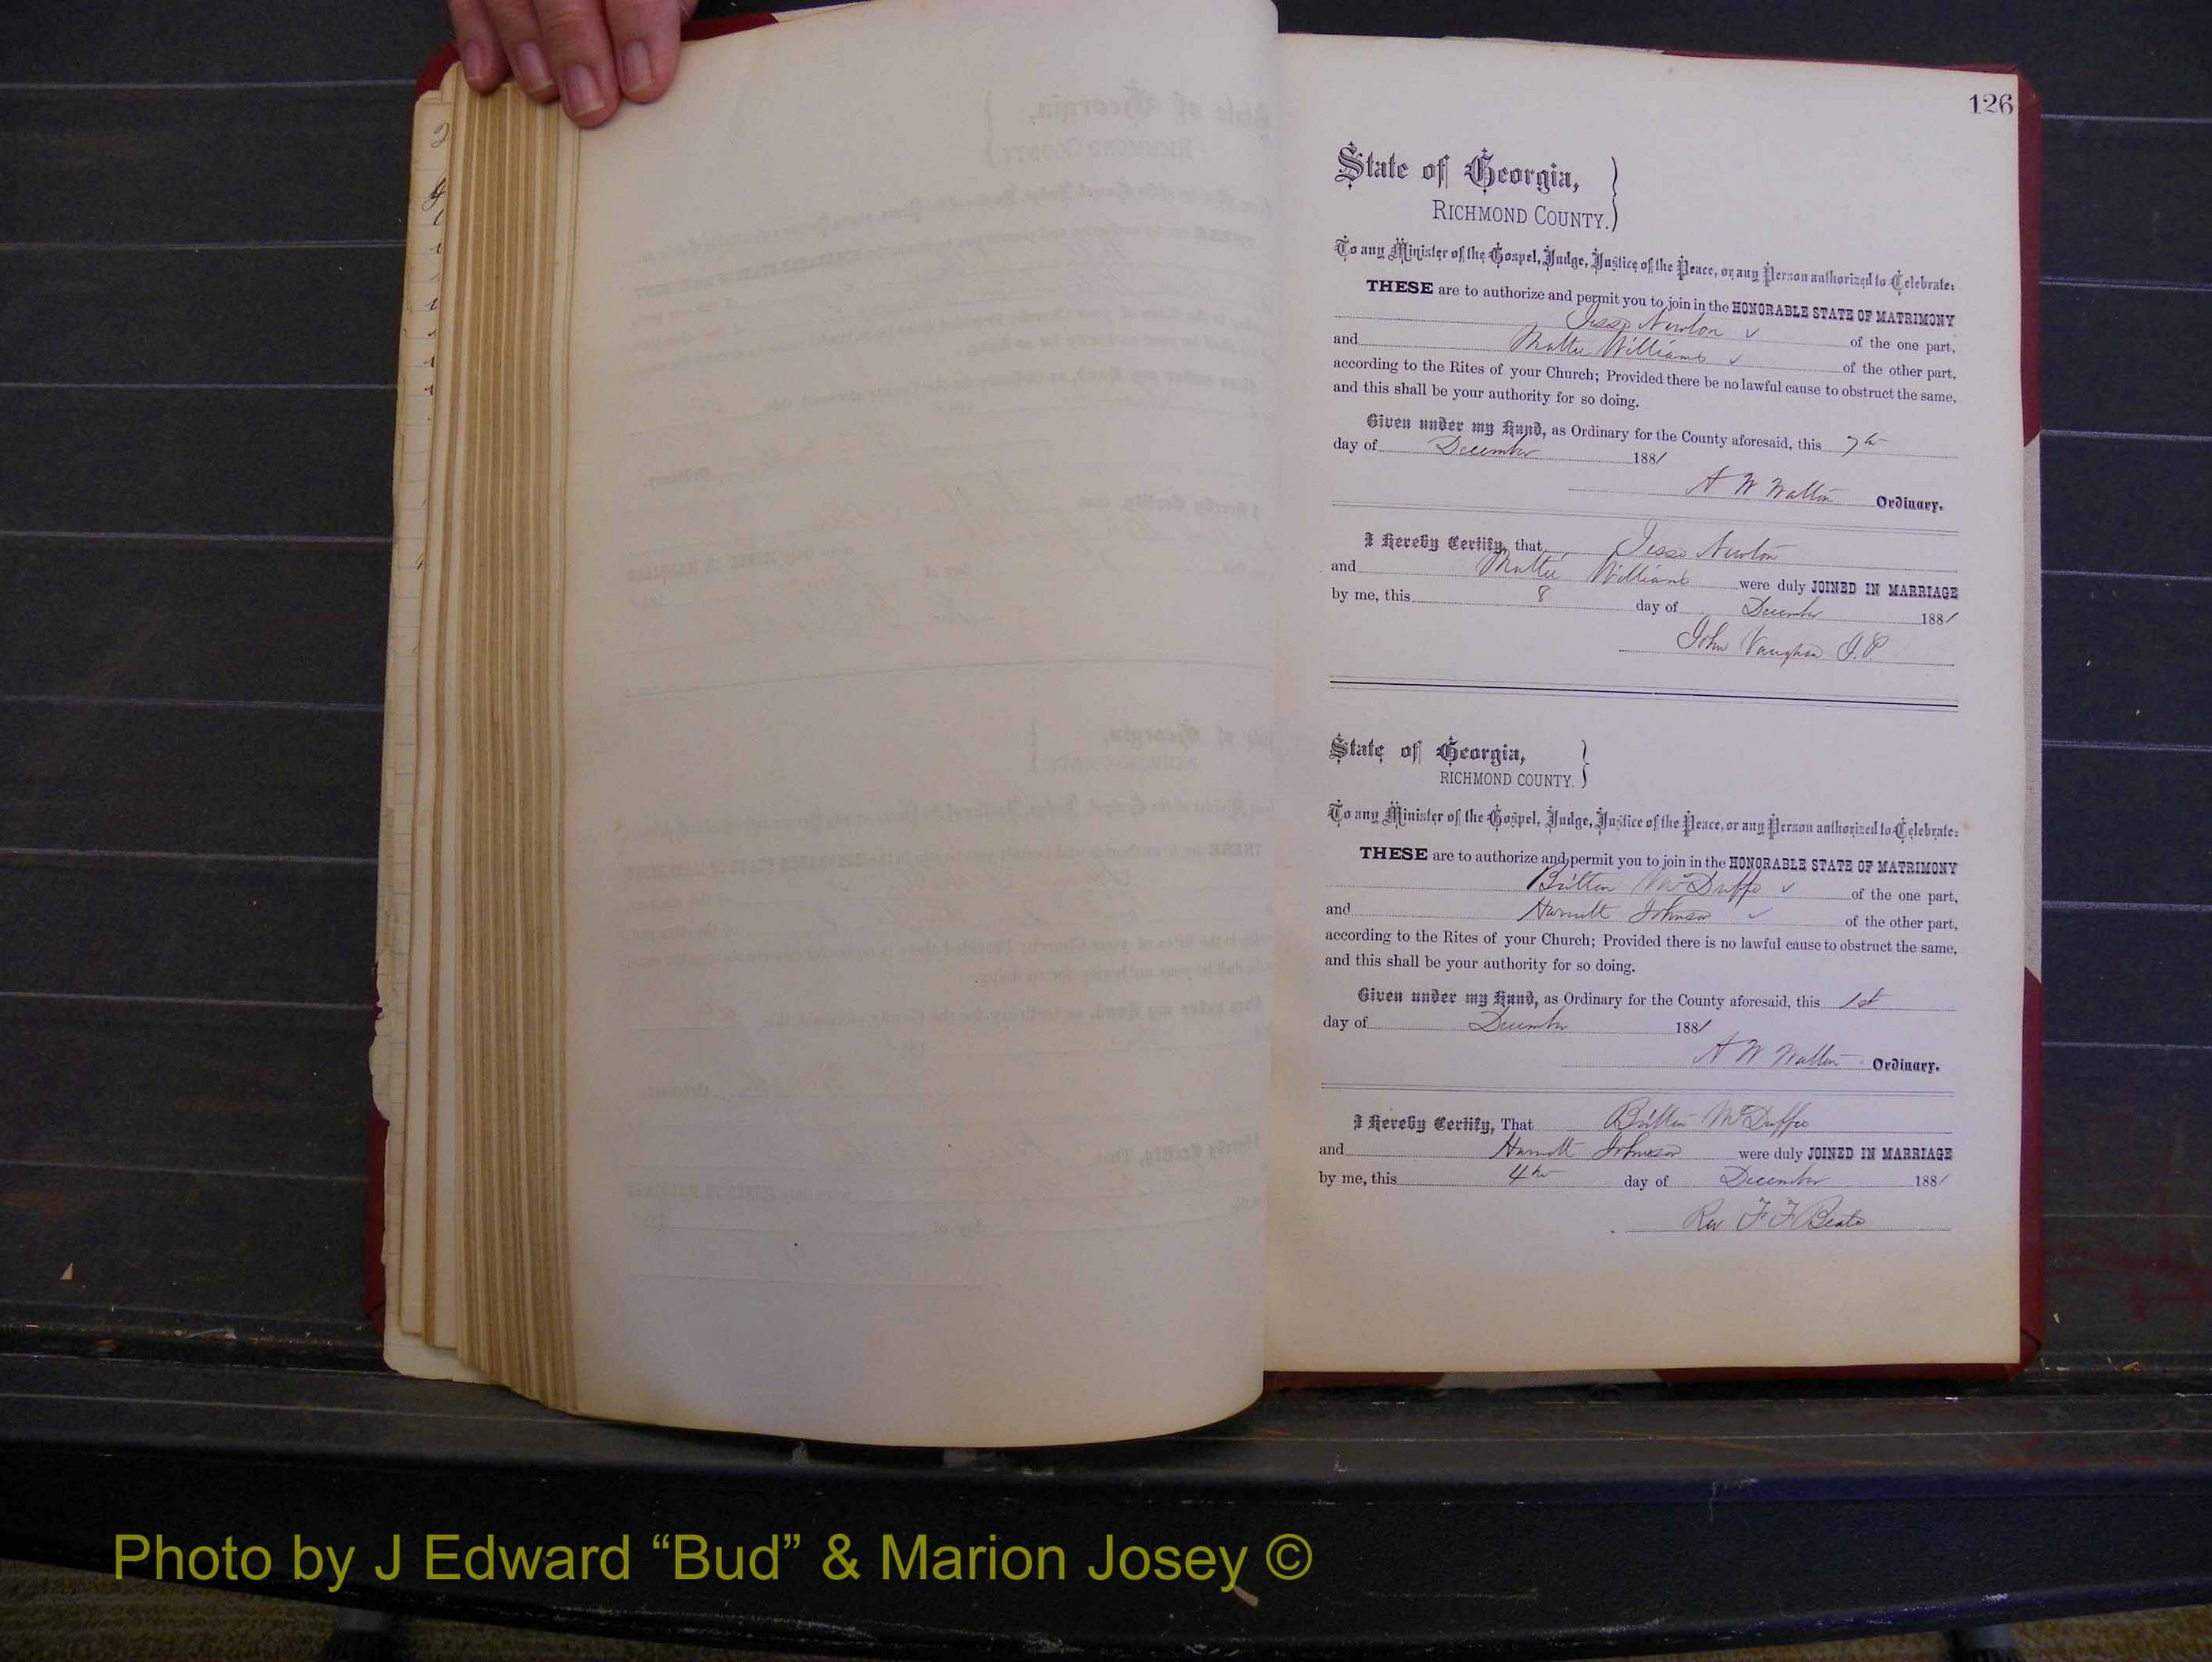 126
State of Georgia,
RICHMOND COUNTY.
To any Minister of the Gospel, Judge, Justice of the Peace, or any Person authorized to Celebrate:
THESE are to authorize and permit you to join in the HONORABLE STATE OF MATRIMONY
Jesse Newton ✓ of the one part,
and Mattie Williams ✓ of the other part,
according to the Rites of your Church; Provided there be no lawful cause to obstruct the same,
and this shall be your authority for so doing.
Given under my Hand, as Ordinary for the County aforesaid, this 7th
day of December 1881
A W Walton Ordinary.
I Hereby Certify, that Jesse Newton
and Mattie Williams were duly JOINED IN MARRIAGE
by me, this 8 day of December 1881
John Vaughan J.P.
State of Georgia,
RICHMOND COUNTY.
To any Minister of the Gospel, Judge, Justice of the Peace, or any Person authorized to Celebrate:
THESE are to authorize and permit you to join in the HONORABLE STATE OF MATRIMONY
Britton McDuffie ✓ of the one part,
and Johnson ✓ of the other part,
according to the Rites of your Church; Provided there is no lawful cause to obstruct the same,
and this shall be your authority for so doing.
Given under my Hand, as Ordinary for the County aforesaid, this 1st
day of December 1881
A W Walton Ordinary.
I Hereby Certify, That Britton McDuffie
and Johnson were duly JOINED IN MARRIAGE
by me, this 4th day of December 1881
Rev F F
Photo by J Edward “Bud” & Marion Josey ©